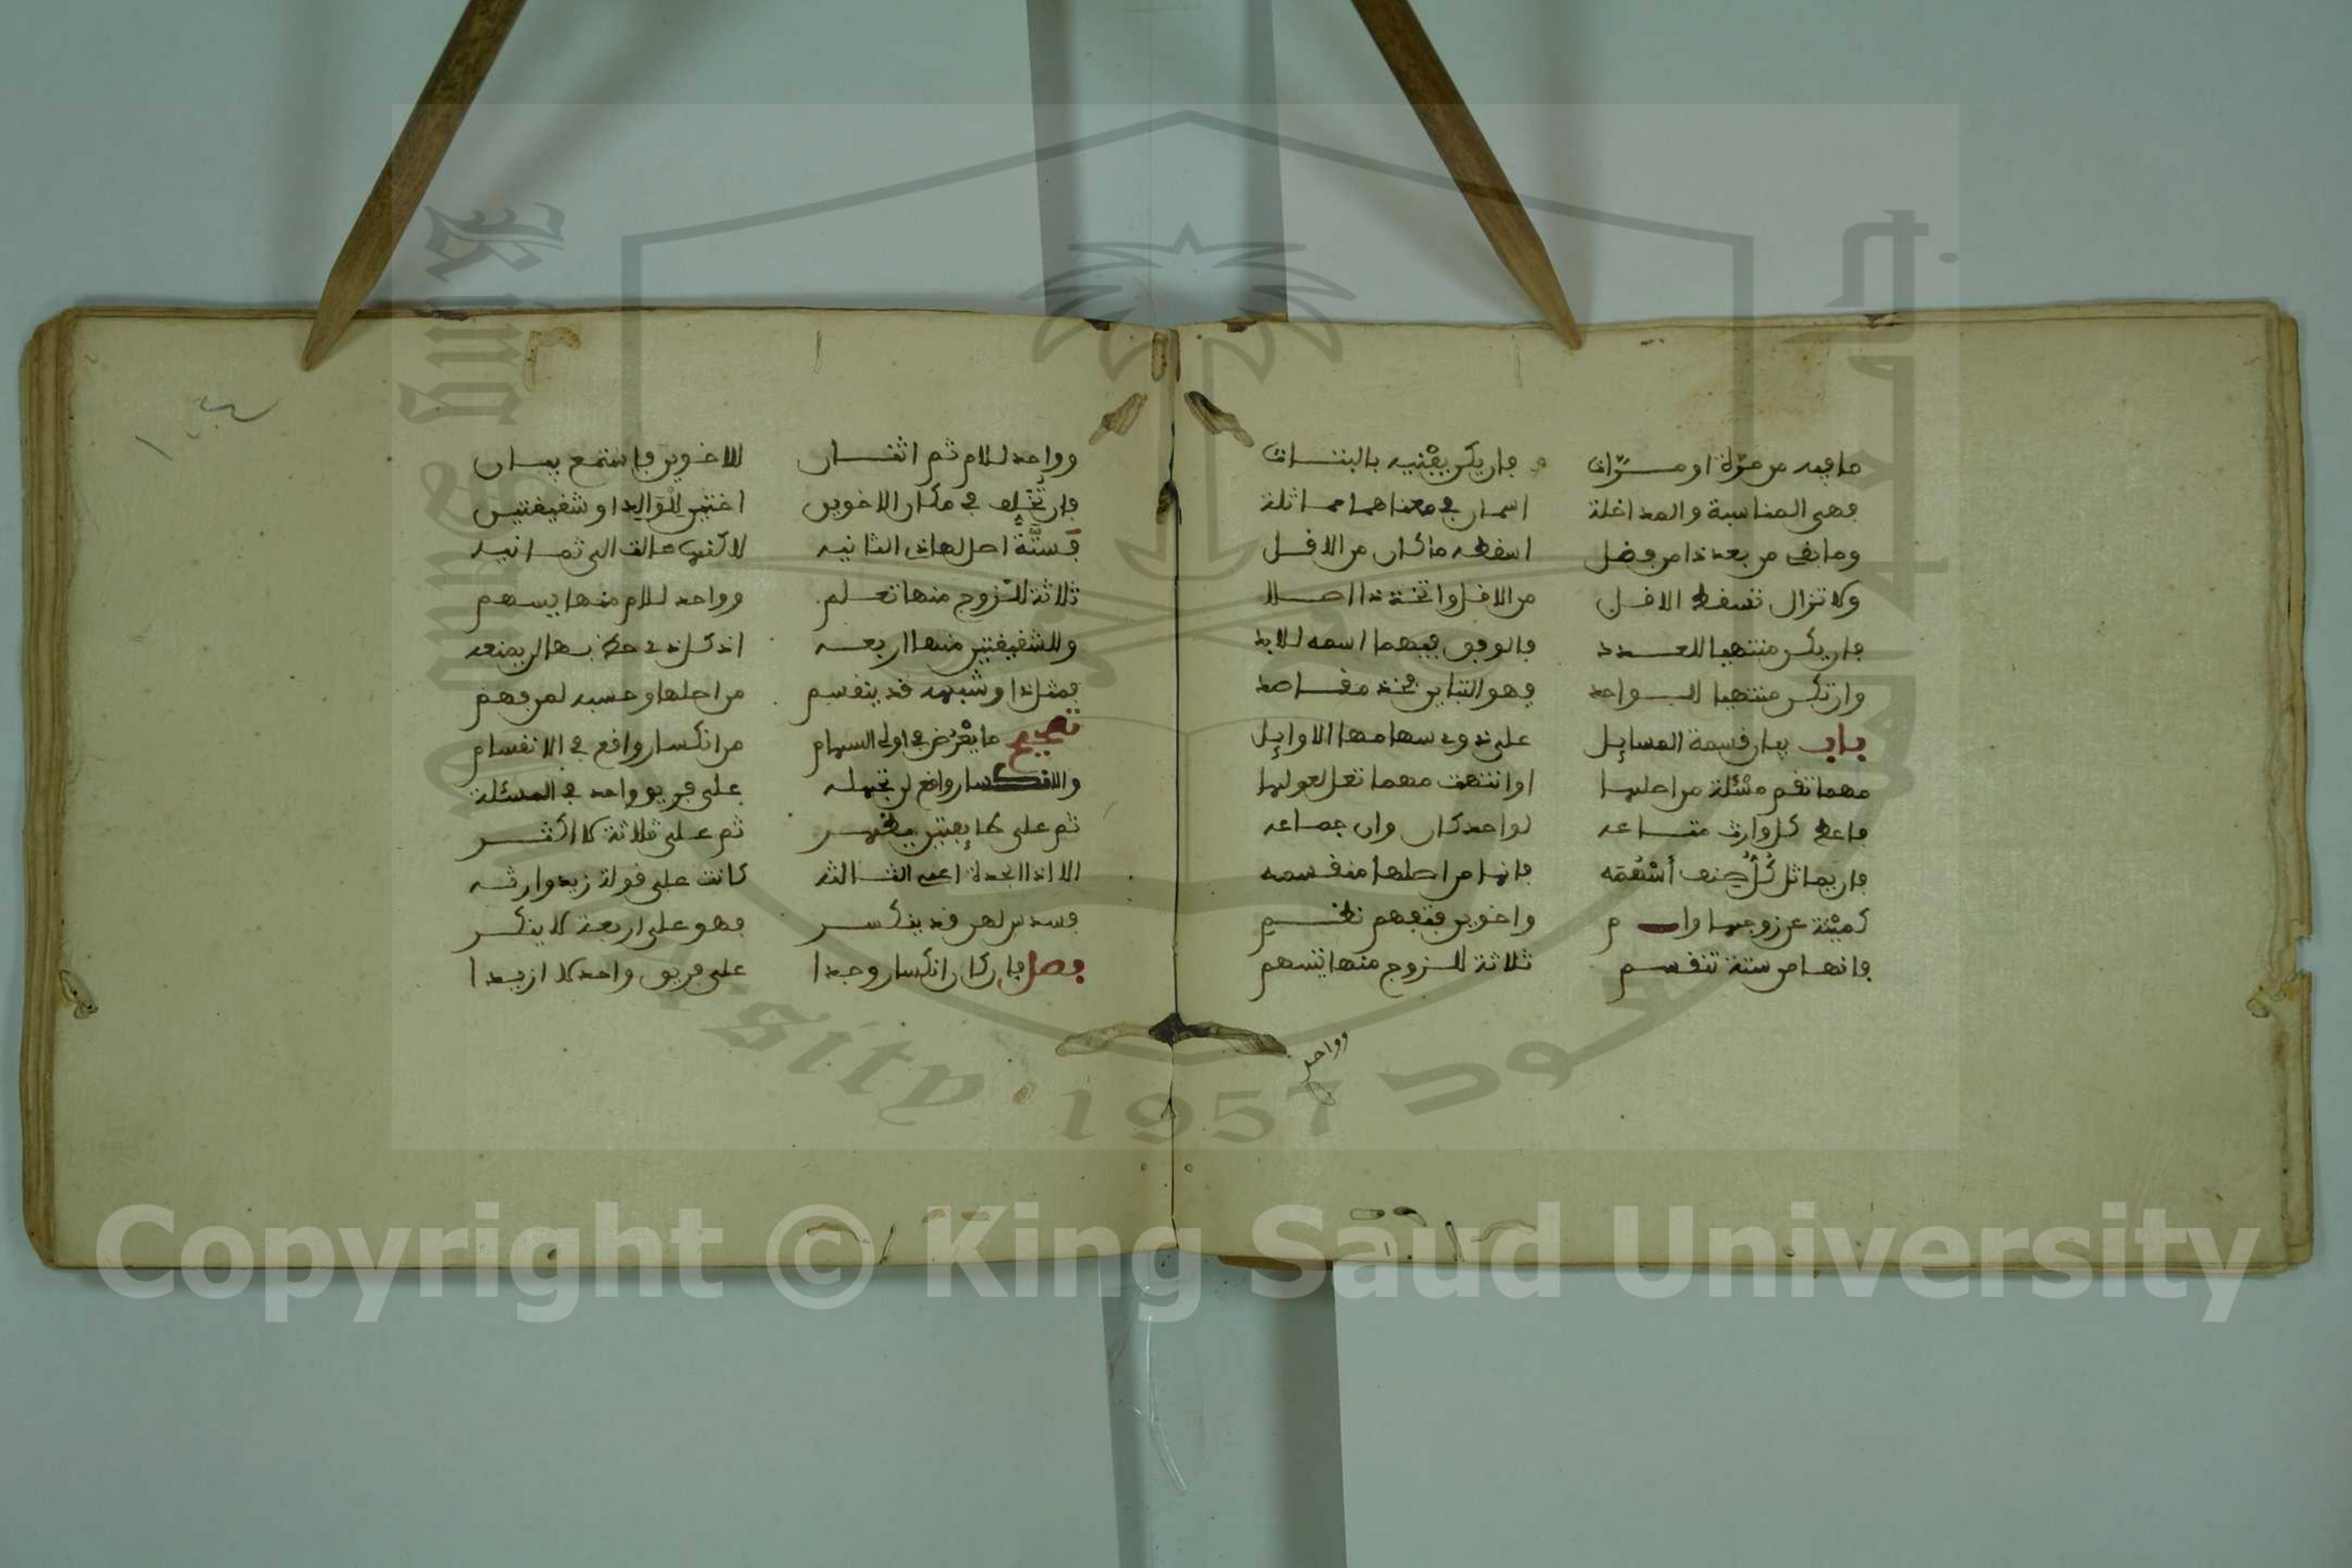 ما فيه من مرة او مرات فان يكن يفنيه بالبتات
فهي المناسبة والمداخلة اسمان في معناهما مماثلة
وما بقى من بعد ذا من فضل اسقطه ما كان من الاقل
ولا تزال تسقط الاقل من الاقل واتخذه اصلا
فان يكن منتهيا للعدد فالوفق فيهما اسمه للابد
وان تكن منتهيا للواحد فهو التباين فخذ مقاصد
باب بيان قسمة المسايل على ذوي سهامها الاوايل
مهما تقم مسئلة من اصلها او انتهت مهما تعل لعولها
فاعط كل وارث متاعه لواحد كان وان جماعه
فان يماثل كل صنف أسهمه فانها من اصلها منقسمه
كميتة عن زوجها وام واخوين
فانها من ستة تنقسم ثلاثة للزوج منها تسهم
وواحد
وواحد للام ثم اثنان للاخوين فاستمع بيان
فان تخلف في مكان الاخوين اختين للوالد او شقيقتين
فستة اصل لهاذي الثانيه لاكنها عالت الى ثمانيه
ثلاثة للزوج منها تعلم وواحد للام منها يسهم
وللشقيقتين منها اربعه اذ كل ذي حظ بها لن يمنعه
فمثل ذا وشبهه قد ينقسم من اصلها وحسبه لمن فهم
تصحيح ما يعرض في اولى السهام من انكسار واقع في الانقسام
والانكسار واقع لن تجهله على فريق واحد في المسئلة
ثم على طايفتين يظهر ثم على ثلاثة لا اكثر
الا اذا الجدة اعني الثالثه كانت على قولة زيد وارثه
فسدس لهن قد ينكسر فهو على اربعة لا ينكر
فصل فان كان انكسار وجدا على فريق واحد لا ازيدا
Copyright © King Saud University
1957